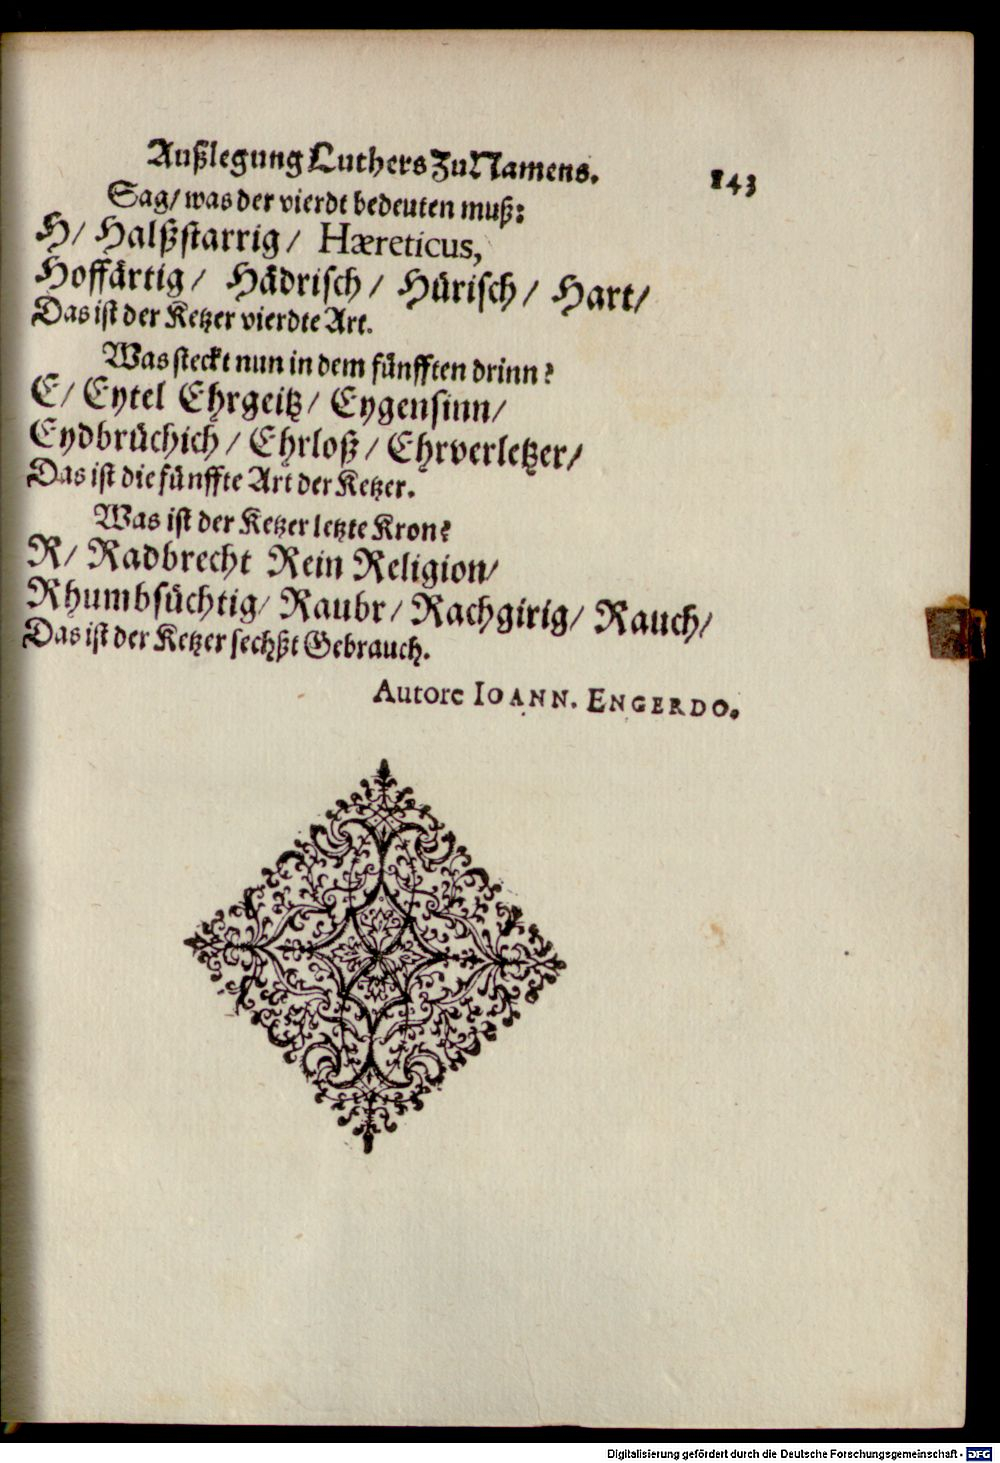 Außlegung Luthers ZuNamens. 143
Sag/ was der vierdt bedeuten muß:
H/ Halßstarrig/ Hæreticus,
Hoffärtig/ Hädrisch/ Hürisch/ Hart/
Das ist der Ketzer vierdte Art.
Was steckt nun in dem fünfften drinn?
E/ Eytel Ehrgeitz/ Eygensinn/
Eydbrüchich/ Ehrloß/ Ehrverletzer/
Das ist die fünffte Art der Ketzer.
Was ist der Ketzer letzte Kron?
R/ Radbrecht Rein Religion/
Rhumbsüchtig/ Raubr/ Rachgirig/ Rauch/
Das ist der Ketzer sechßt Gebrauch.
Autore IOANN. ENGERDO.
Digitalisierung gefördert durch die Deutsche Forschungsgemeinschaft - DFG